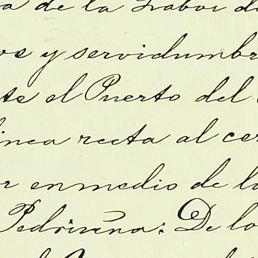 a de la Labor de
os y servidumbr
te el Puerto del
linea recta al cer
r enmedio de l
Pedrizena: De lo